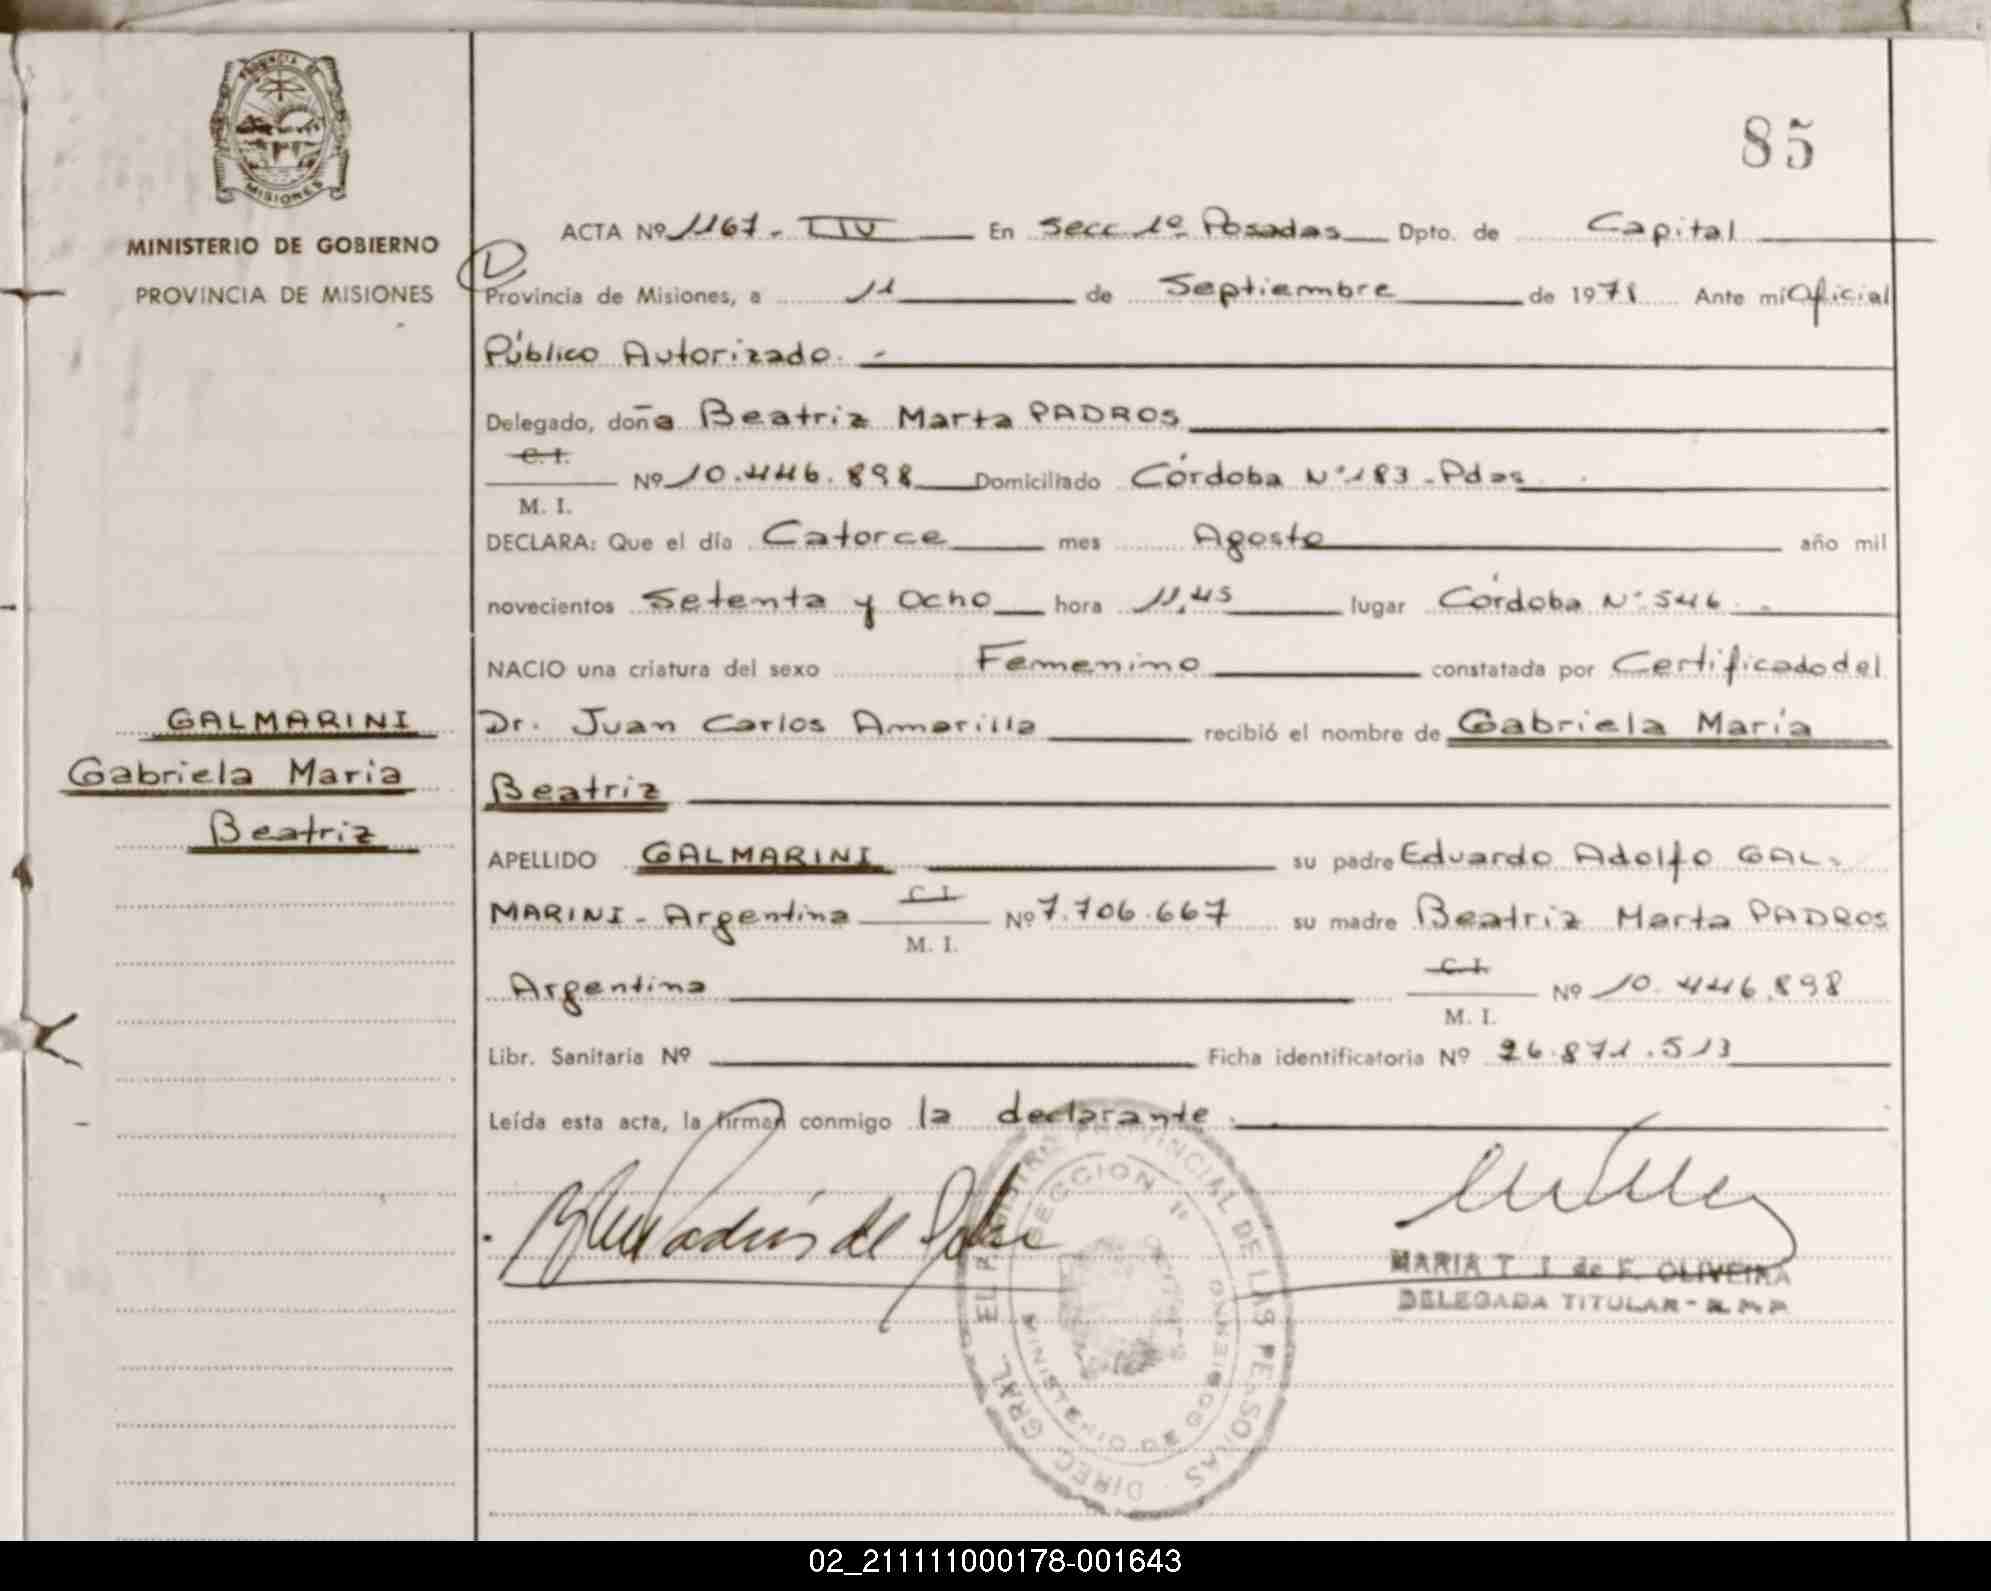 85
PROVINCIA DE
MISIONES
MINISTERIO DE GOBIERNO
PROVINCIA DE MISIONES
ACTA Nº 1167 - TIV En Secc 1º Posadas Dpto. de Capital
Provincia de Misiones, a 11 de Septiembre de 1978 Ante mi Oficial
Público Autorizado. -
Delegado, doña Beatriz Marta PADROS
C. I.
M. I.
Nº 10.446.898 Domiciliado Córdoba Nº 183 - Pdas
DECLARA: Que el día Catorce mes Agosto año mil
novecientos Setenta y Ocho hora 11,45 lugar Córdoba Nº 546.
NACIO una criatura del sexo Femenino constatada por Certificado del
Dr. Juan Carlos Amarilla recibió el nombre de Gabriela María
Beatriz
GALMARINI
Gabriela Maria
Beatriz
APELLIDO GALMARINI su padre Eduardo Adolfo GAL-
MARINI - Argentina C. I. M. I. Nº 7.706.667 su madre Beatriz Marta PADROS
Argentina C. I. M. I. Nº 10.446.898
Libr. Sanitaria Nº Ficha identificatoria Nº 26.871.513
Leída esta acta, la firman conmigo la declarante.
MARIA T. J. de F. OLIVEIRA
DELEGADA TITULAR -
DIREC. GRAL. DEL REGISTRO PROVINCIAL DE LAS PERSONAS
SECCION 1º
MINISTERIO DE GOBIERNO
02_211111000178-001643